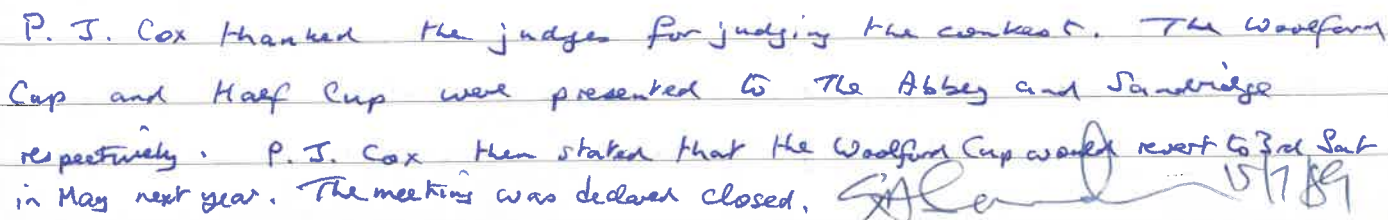 P. J. Cox thanked the judges for judging the contest. The Woolford
Cup and Half Cup were presented to The Abbey and Sandridge
respectively. P. J. Cox then stated that the Woolford Cup would revert to 3rd Sat
in May next year. The meeting was declared closed. 15/7/89